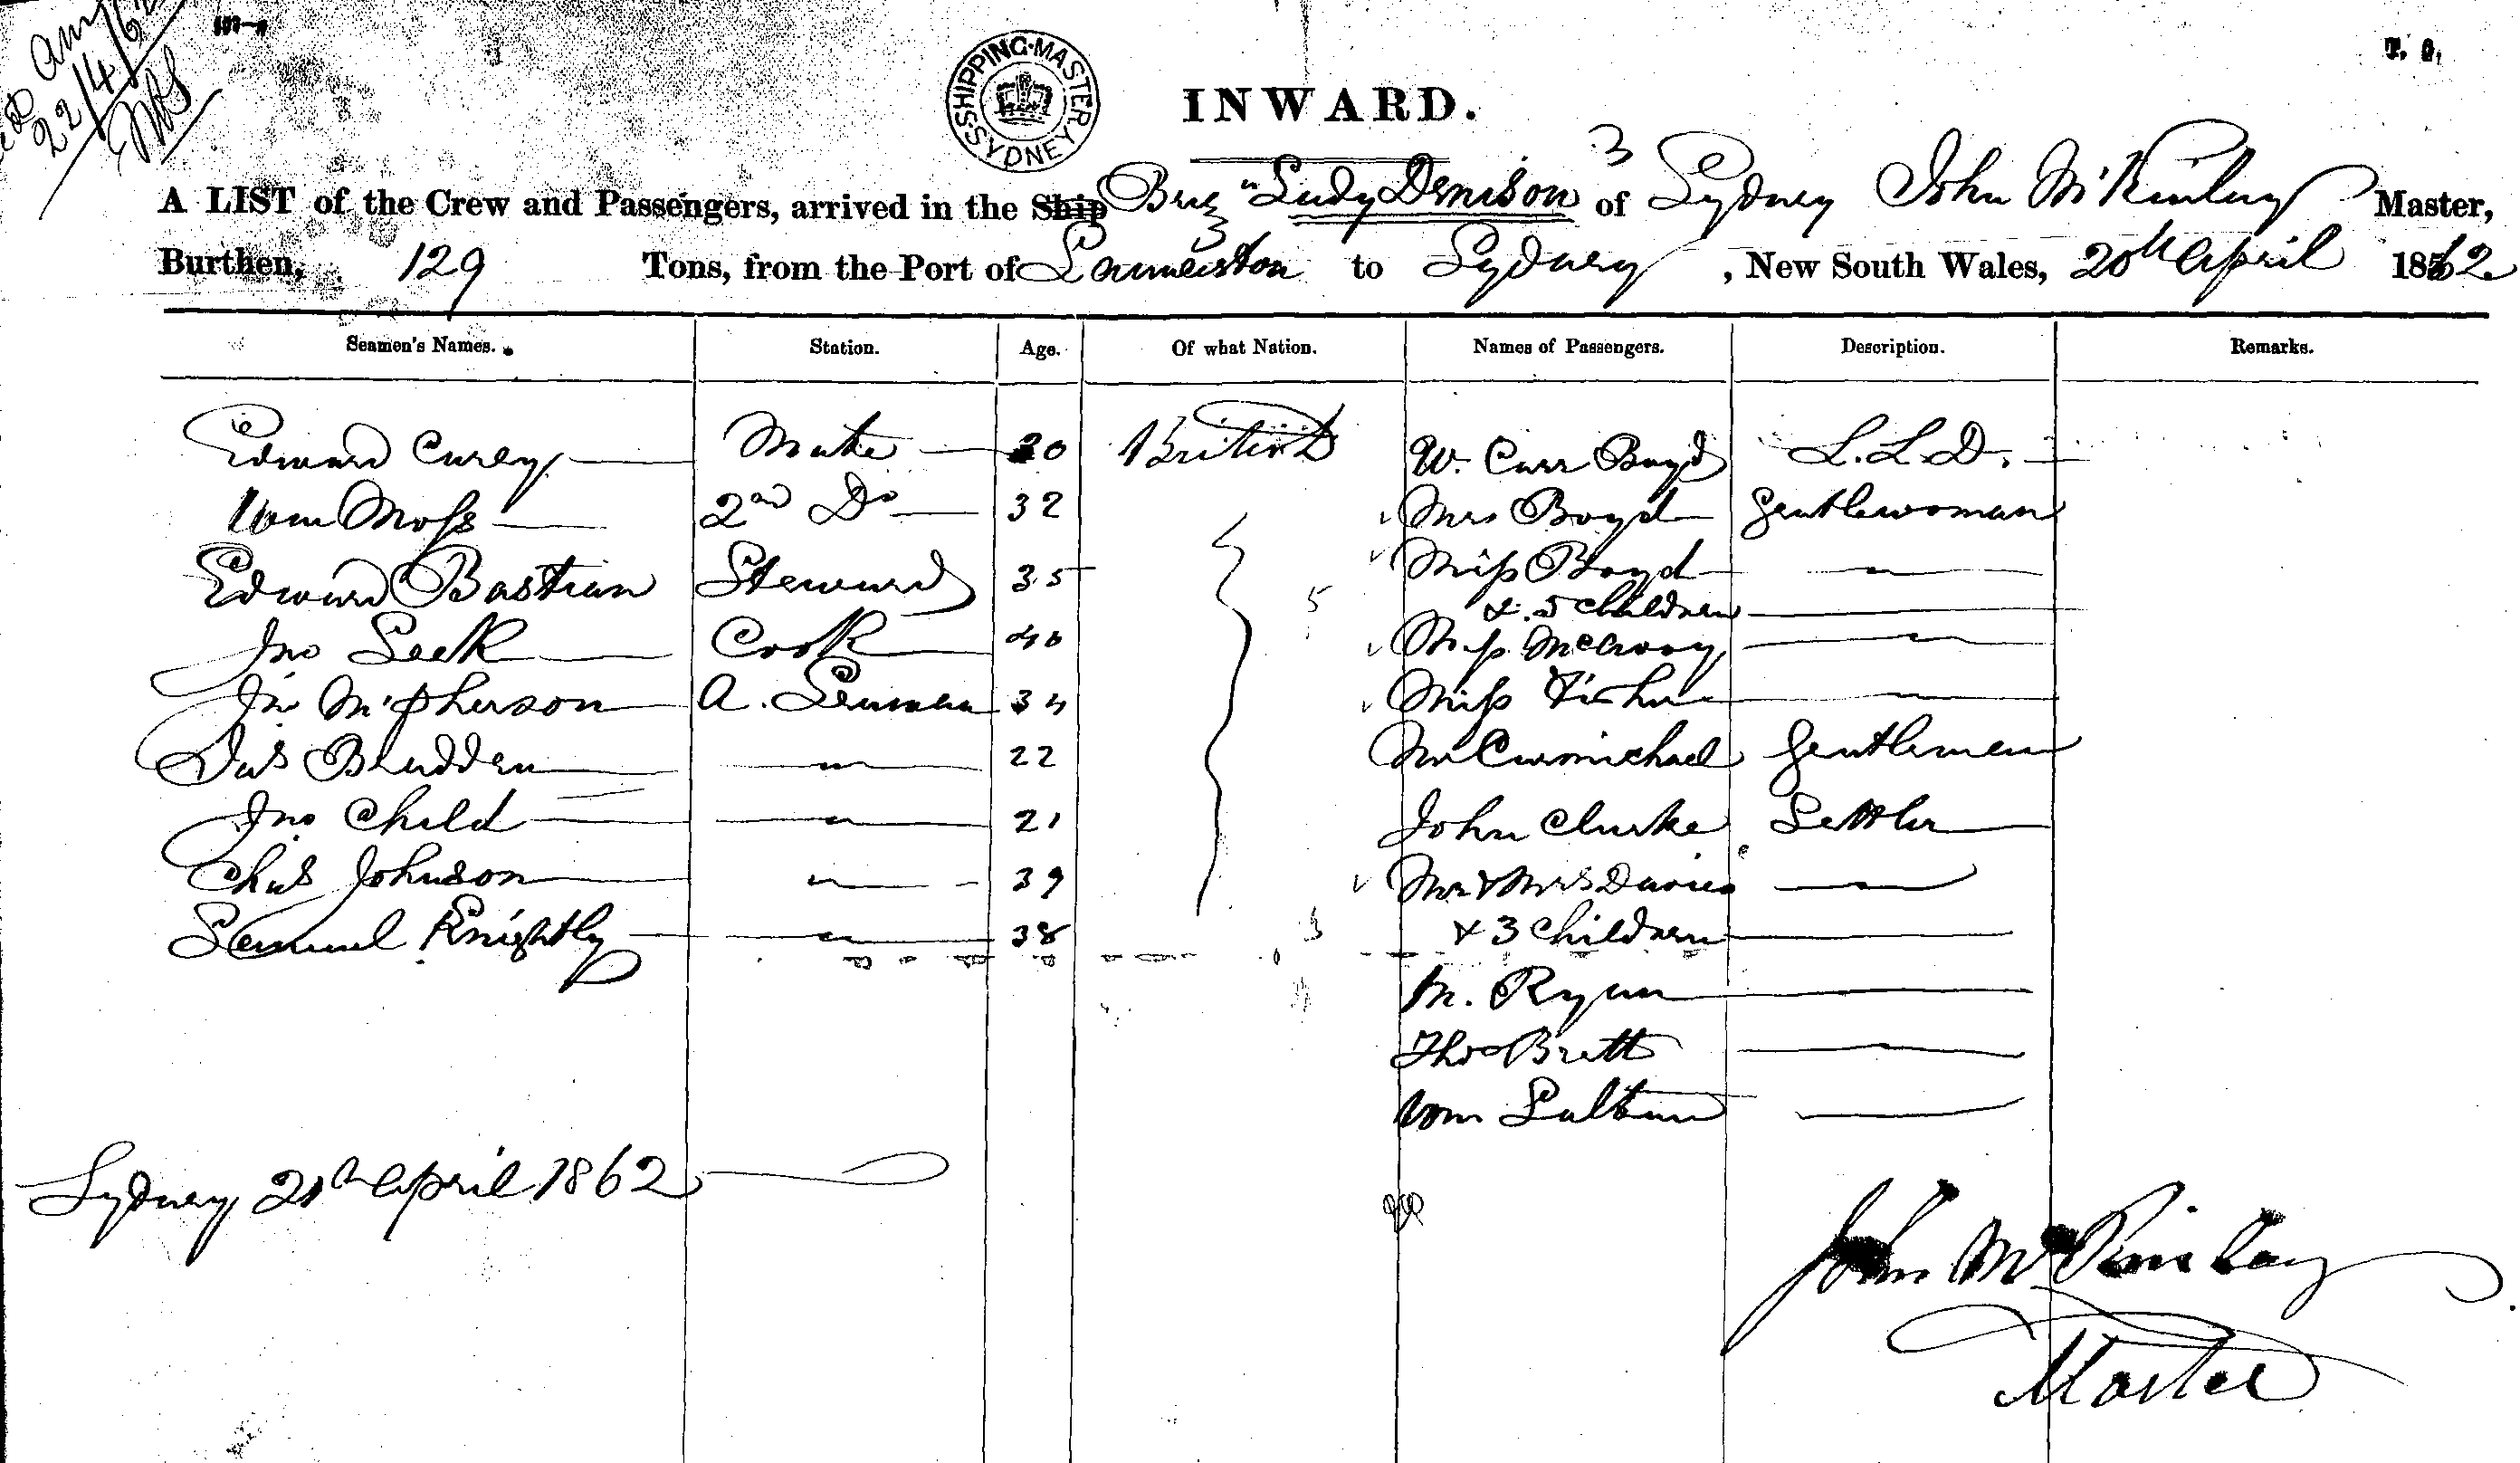 22/4/62
SHIPPING MASTER SYDNEY
INWARD.
A LIST of the Crew and Passengers, arrived in the Ship Brig "Lady Denison of Sydney John McKinlay Master,
Burthen, 129 Tons, from the Port of Launceston to Sydney, New South Wales, 20th April 1862
Seamen's Names. Station. Age. Of what Nation. Names of Passengers. Description. Remarks.
Edward Curey Mate 30 British W. Carr Boyd L.L.D.
Wm Moss 2nd Do 32 Mrs Boyd Gentlewoman
Edward Bastian Steward 35 Miss Boyd "
5 & 5 children
Jno Leek Cook 40 Miss McCrory "
Jno McPherson A. Seaman 34 Miss "
Jas Bludden " 22 Mr Carmichael Gentleman
Jno Child " 21 John Clarke Settler
Chas Johnson " 39 Mr & Mrs Davies "
Samuel Knightly " 38 3 & 3 children
M. Ryan
Thos Brett
Wm
Sydney 21st April 1862
John McKinlay
Master